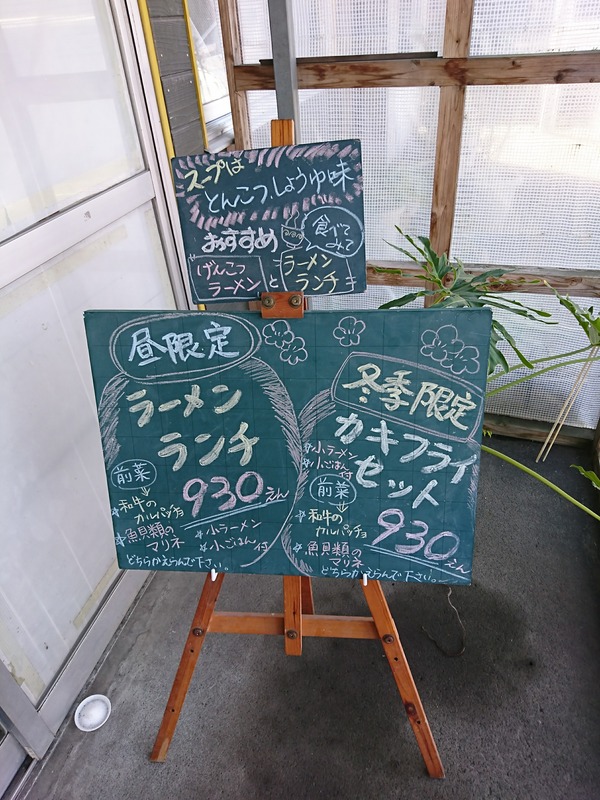 スープは
とんこつ、しょうゆ味
おすすめ
食べて
みて
げんこつ
ラーメン
と
ラーメン
ランチ
昼限定
ラーメン
ランチ
930えん
前菜
☆和牛の
カルパッチョ
☆魚貝類の
マリネ
☆小ラーメン
☆小ごはん付
どちらかえらんで下さい。
冬季限定
カキフライ
セット
☆小ラーメン
☆小ごはん付
前菜
☆和牛の
カルパッチョ
930えん
☆魚貝類の
マリネ
どちらかえらんで下さい。